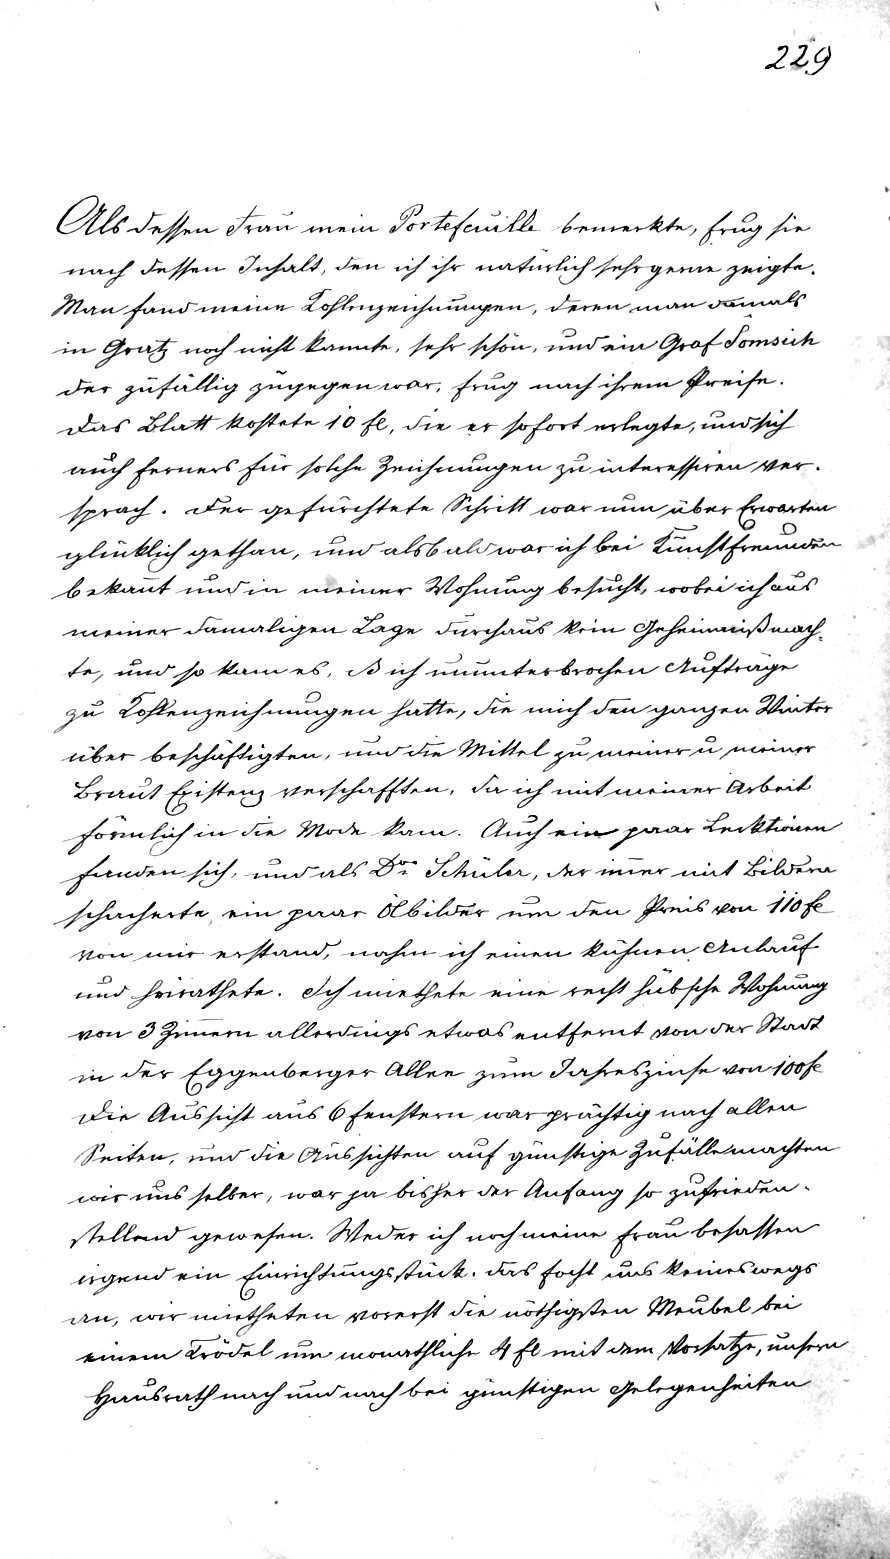 229
Als dessen Frau mein Portefeuille bemerkte, frug sie
nach dessen Inhalt, den ich ihr natürlich sehr gerne zeigte.
Man fand meine Kohlenzeichnungen, deren man damals
in Gratz noch nicht kannte, sehr schön, und ein Graf Somsich
der zufällig zugegen war, frug nach ihrem Preise.
Das Blatt kostete 10 fl, die er sofort erlegte, und sich
auch ferners für solche Zeichnungen zu interessiren ver-
sprach. Der gefürchtete Schritt war nun über Erwarten
glücklich gethan, und alsbald war ich bei Kunstfreunden
bekañt und in meiner Wohnung besucht, wobei ich aus
meiner damaligen Lage durchaus kein Geheimniß mach-
te, und so kam es, ß ich ununterbrochen Aufträge
zu Kohlenzeichnungen hatte, die mich den ganzen Winter
über beschäftigten, und die Mittel zu meiner u meiner
Braut Existenz verschafften, da ich mit meiner Arbeit
förmlich in die Mode kam. Auch ein paar Lecktionen
fanden sich, und als Dor Schüler, der im̄er mit Bildern
schacherte, ein paar Ölbilder um den Preis von 110 fl
von mir erstand, nahm ich einen kühnen Anlauf
und heirathete. Ich miethete eine recht hübsche Wohnung
von 3 Zim̄ern allerdings etwas entfernt von der Stadt
in der Eggenberger Allee zum Jahreszinse von 100 fl
Die Aussicht aus 6 Fenstern war prächtig nach allen
Seiten, und die Aussichten auf günstige Zufälle machten
wir uns selber, war ja bisher der Anfang so zufrieden-
stellend gewesen. Weder ich noch meine Frau besassen
irgend ein Einrichtungsstück. das focht uns keineswegs
an, wir mietheten vorerst die nöthigsten Meubel bei
einem Trödel um monathliche 4 fl mit dem Vorsatze, unsern
Hausrath nach und nach bei günstigen Gelegenheiten